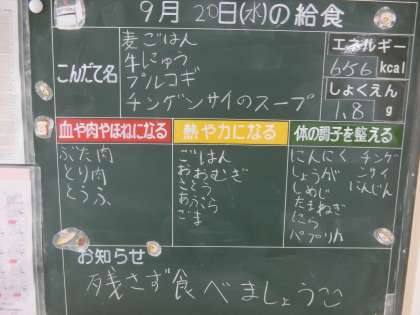 9月20日(水)の給食
こんだて名
麦ごはん
牛にゅう
プルコギ
チンゲンサイのスープ
エネルギー
656 kcal
しょくえん
1.8 g
血や肉やほねになる
ぶた肉
とり肉
とうふ
熱や力になる
ごはん
おおむぎ
さとう
あぶら
ごま
体の調子を整える
にんにく
しょうが
しめじ
たまねぎ
にら
パプリカ
チンゲ
ンサイ
にんじん
お知らせ
残さず食べましょう